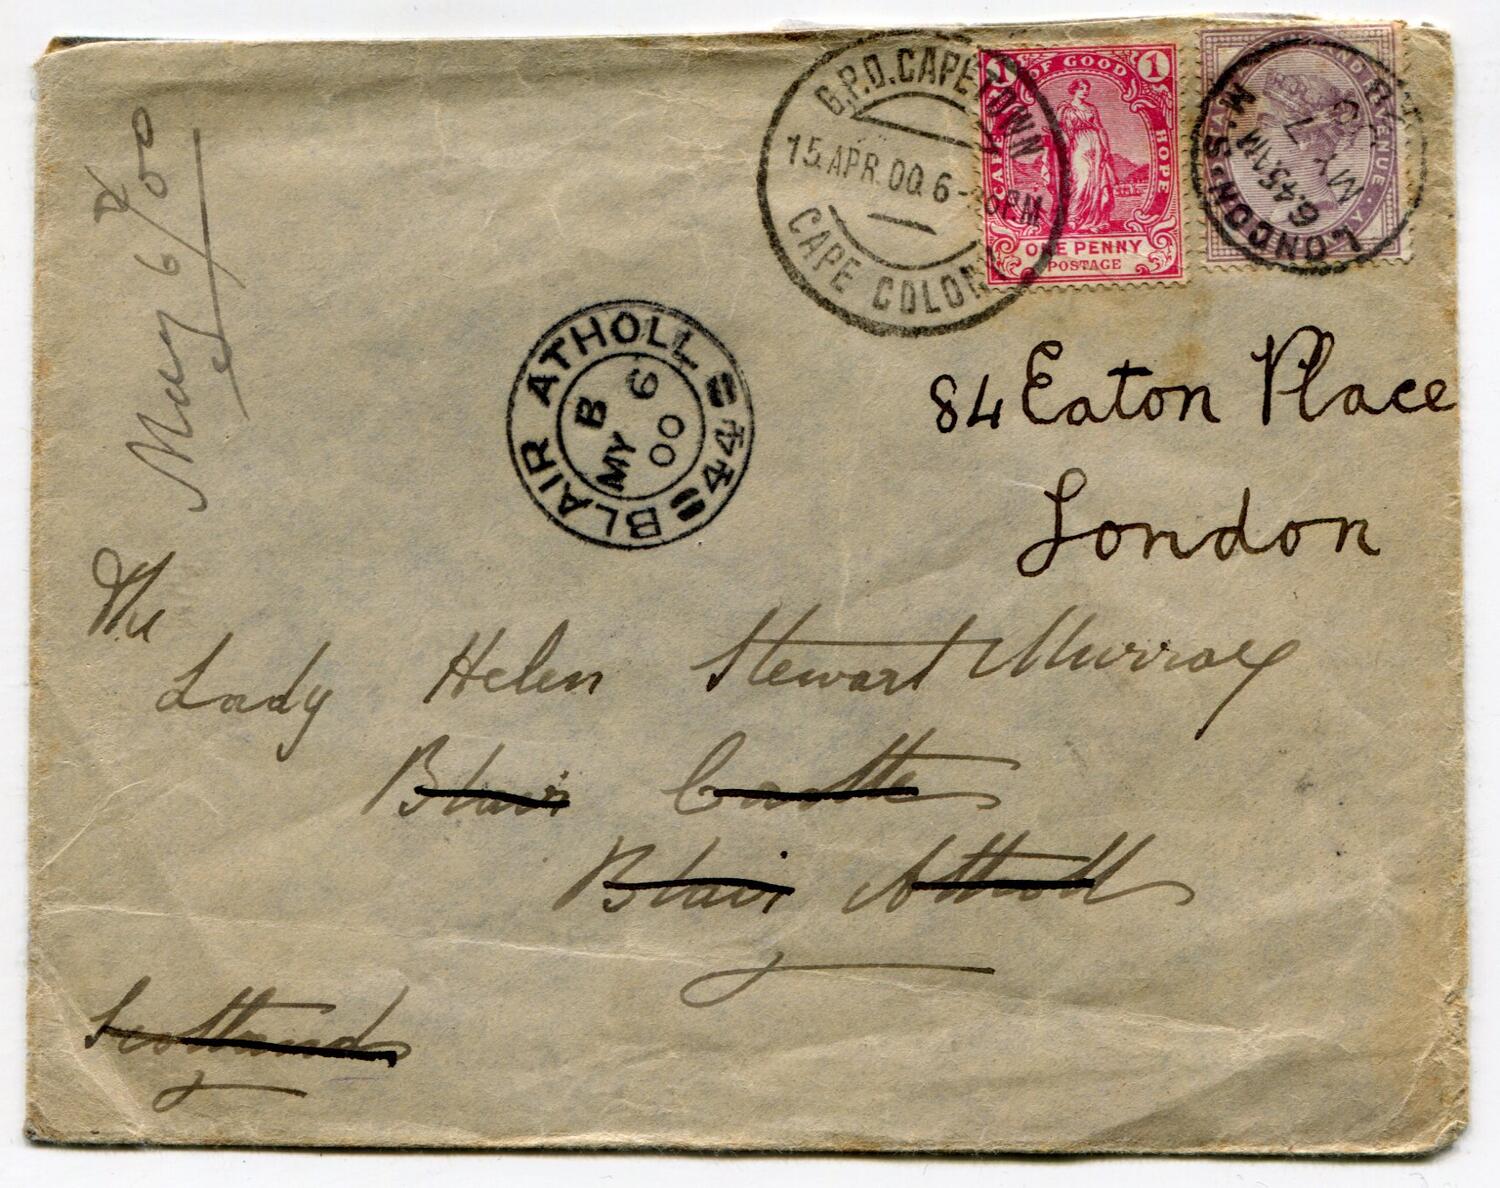 G.P.O. CAPE TOWN
15.APR.00.6-
PM
CAPE COLONY
1 1
CAPE OF GOOD HOPE
ONE PENNY
POSTAGE
LONDON.S.M.
6.45 PM
MY 7
00
REVENUE
May 6/00
BLAIR ATHOLL
B
MY 6
00
BLAIR
44
84 Eaton Place
London
The
Lady Helen Stewart Murray
Blair Castle
Blair Atholl
Scotland